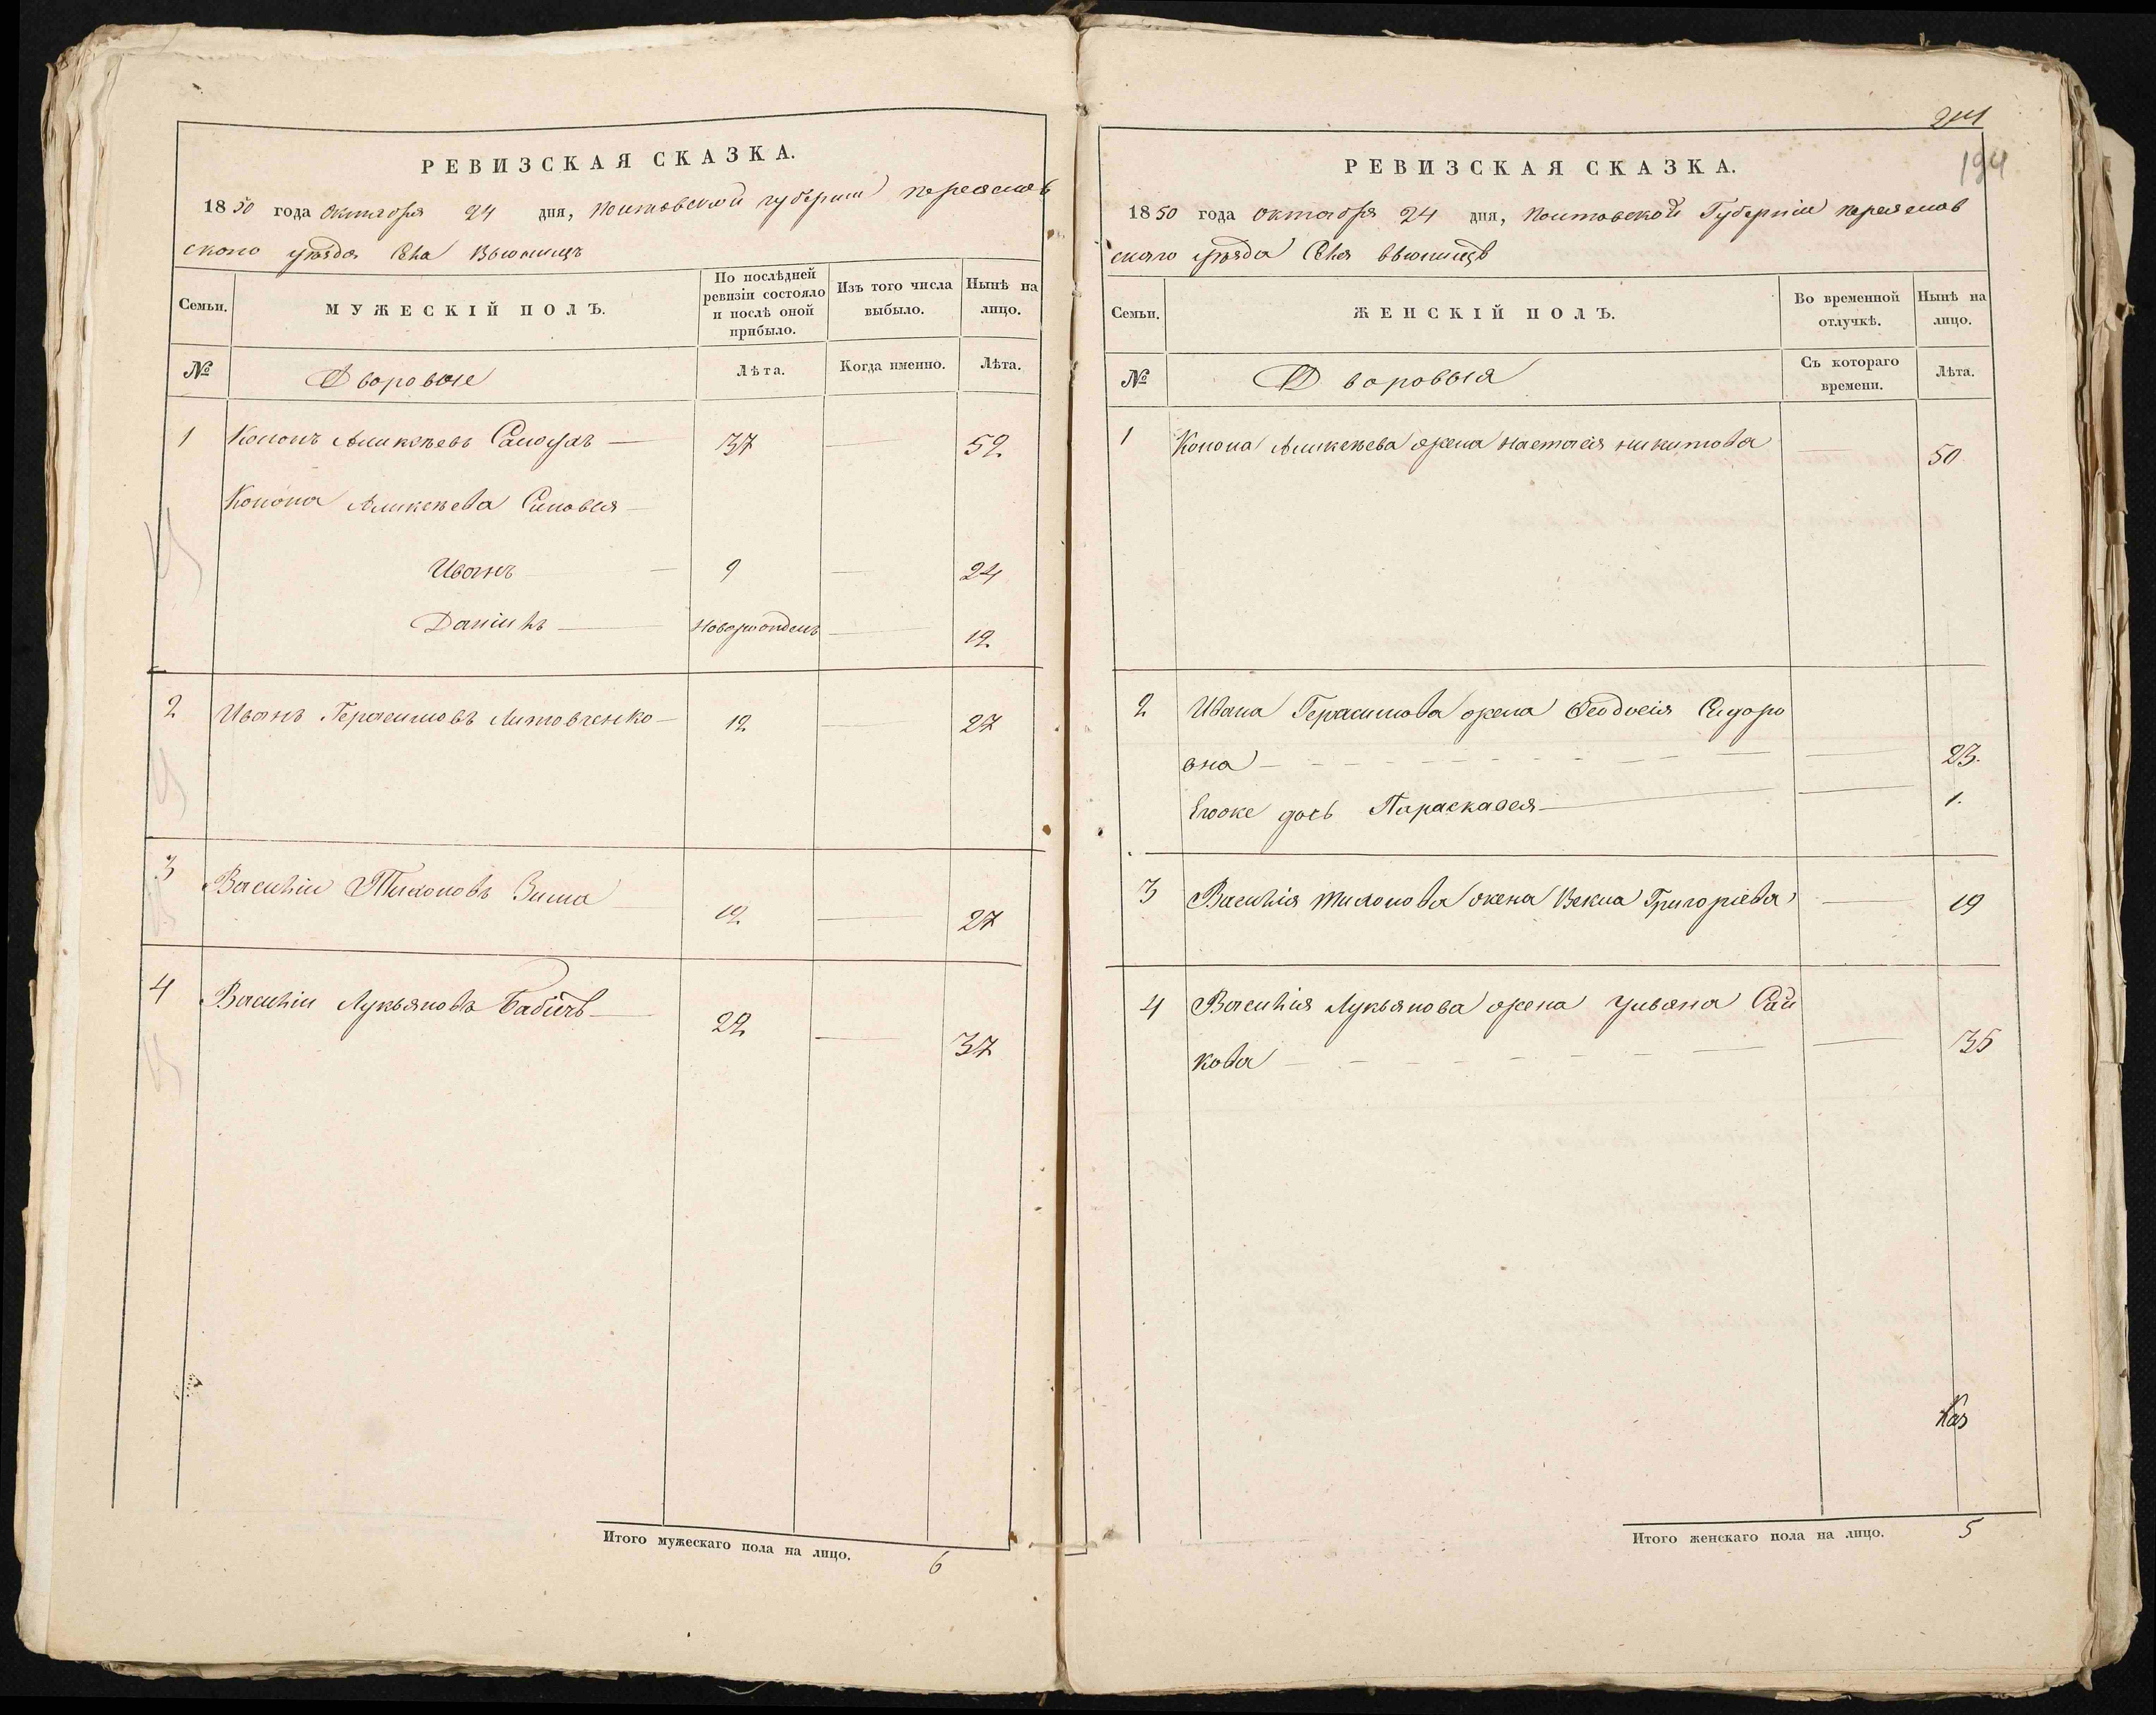 РЕВИЗСКАЯ СКАЗКА.
1850 года Октября 24 дня, Полтавской губернии Переяслав
скаго уѣзда Села Вьюнищъ
Семьи.
МУЖЕСКІЙ ПОЛЪ.
По послѣдней ревизіи состояло и послѣ оной прибыло.
Изъ того числа выбыло.
Нынѣ на лицо.
№
Дворовые
Лѣта.
Когда именно.
Лѣта.
1 Кононъ Аликсѣевъ — 37 — 52
Конона Аликсѣева Синовья —
Иванъ — 9 — 24
Даніилъ — новорожденъ — 12
2 Иванъ Герасимовъ Литовченко — 12 — 27
3 Василій Тихоновъ Зима 12 — 27
4 Василій Лукьяновъ Бабичъ — 22 — 37
Итого мужескаго пола на лицо. 6
194
РЕВИЗСКАЯ СКАЗКА.
1850 года Октября 24 дня, Полтавской Губерніи Переяслав
скаго уѣзда Села Вьюнищъ
Семьи.
ЖЕНСКІЙ ПОЛЪ.
Во временной отлучкѣ.
Нынѣ на лицо.
№
Дворовыя
Съ котораго времени.
Лѣта.
1 Конона Аликсѣева жена Настасія Никитова — 50
2 Ивана Герасимова жена Феодосія Сидоро
вна — — 23.
Егоже дочь Параскавея — — 1.
3 Василія Тихонова жена Векла Григоріева — 19
4 Василія Лукьянова жена Уивана Сай
кова — — 35
Итого женскаго пола на лицо. 5